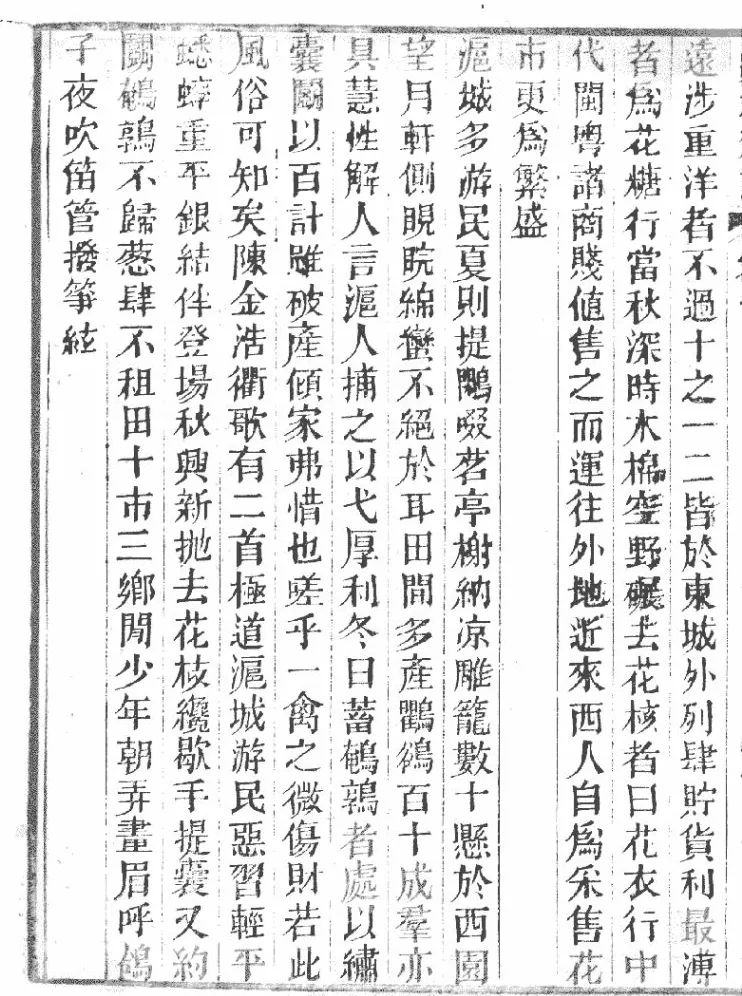 遠涉重洋者不過十之一二皆於東城外列肆貯貨利最溥
者爲花糖行當秋深時木棉空野碾去花核者曰花衣行中
代閩粵諸商賤値售之而運往外地近來西人自爲采售花
市更爲繁盛
滬城多游民夏則提鷳啜茗亭榭納凉雕籠數十懸於西園
望月軒側睍睆綿蠻不絕於耳田間多產鸜鵒百十成羣亦
具慧性解人言滬人捕之以弋厚利冬日蓄鵪鶉者處以繡
囊鬬以百計雖破產傾家弗惜也嗟乎一禽之微傷財若此
風俗可知矣陳金浩衢歌有二首極道滬城游民惡習輕平
蟋蟀重平銀結伴登場秋興新拋去花枝纔歇手提囊又約
鬬鵪鶉不歸葱肆不租田十市三鄉閒少年朝弄畫眉呼鴿
子夜吹笛管撥箏絃